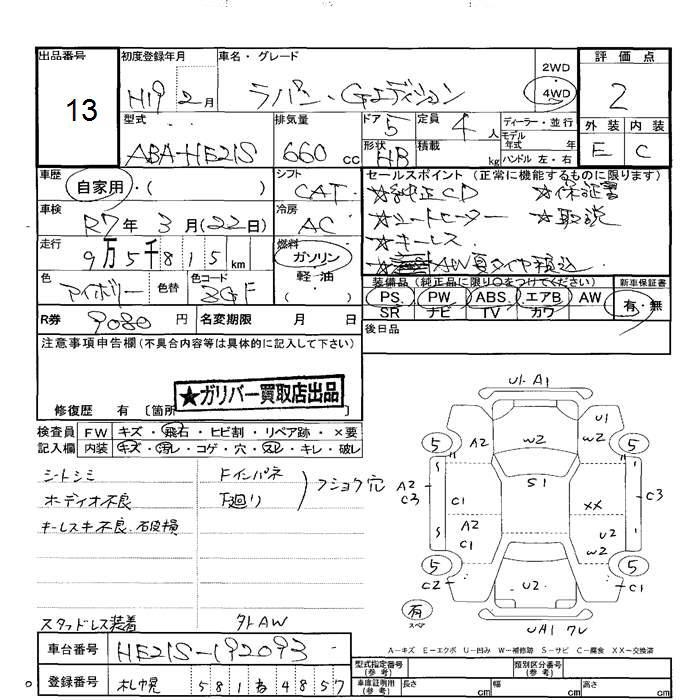 出品番号
13
初度登録年月
H19 2月
車名・グレード
ラパン・Gエディション
2WD
4WD
評価点
2
外装 内装
E C
型式
ABA-HE21S
排気量
660 cc
ドア 5
定員 4 人
形状 HB
積載 kg
ディーラー・並行
モデル年式 年
ハンドル 左・右
車歴
自家用・( )
シフト
CAT
車検
R7年 3月(22日)
冷房
AC
走行
9万5千815 km
燃料
ガソリン
軽・油
( )
色
アイボリー
色替
色コード
セールスポイント (正常に機能するものに限ります)
☆純正CD ☆保証書
☆シートヒーター ☆取説
☆キーレス
装備品 (純正品に限り○をつけてください)
PS. PW ABS. エアB AW
SR ナビ TV カワ
新車保証書
有・無
R券 9080 円
名変期限 月 日
後日品
注意事項申告欄(不具合内容等は具体的に記入して下さい)
★ガリバー買取店出品
修復歴 有 〔箇所
検査員記入欄
FW キズ・飛石・ヒビ割・リペア跡・×要
内装 キズ・汚レ・コゲ・穴・スレ・キレ・破レ
シートシミ
オーディオ不良
キーレスキ不良、破損
Fインパネ
下廻り
フショク穴
スタッドレス装着
外AW
U1・A1
U1
A2
W2
W2
5 5
A2
C3
C1
S1
XX
C3
A2
C1
U2
W2
5 5
C2
U2
C1
有
スペア
UA1 7U
A―キズ E―エクボ U―凹み W―補修跡 S―サビ C―腐食 XX―交換済
車台番号
HE21S-192093
登録番号
札幌 581 あ 4857
型式指定番号(参考)
類別区分番号(参考)
車庫証明用(参考)
長さ cm
幅 cm
高さ cm